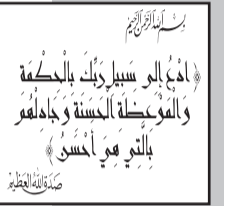 بسم الله الرحمن الرحيم
﴿ ادْعُ إِلَى سَبِيلِ رَبِّكَ بِالْحِكْمَةِ
وَالْمَوْعِظَةِ الْحَسَنَةِ وَجَادِلْهُمْ
بِالَّتِي هِيَ أَحْسَنُ ﴾
صدق الله العظيم